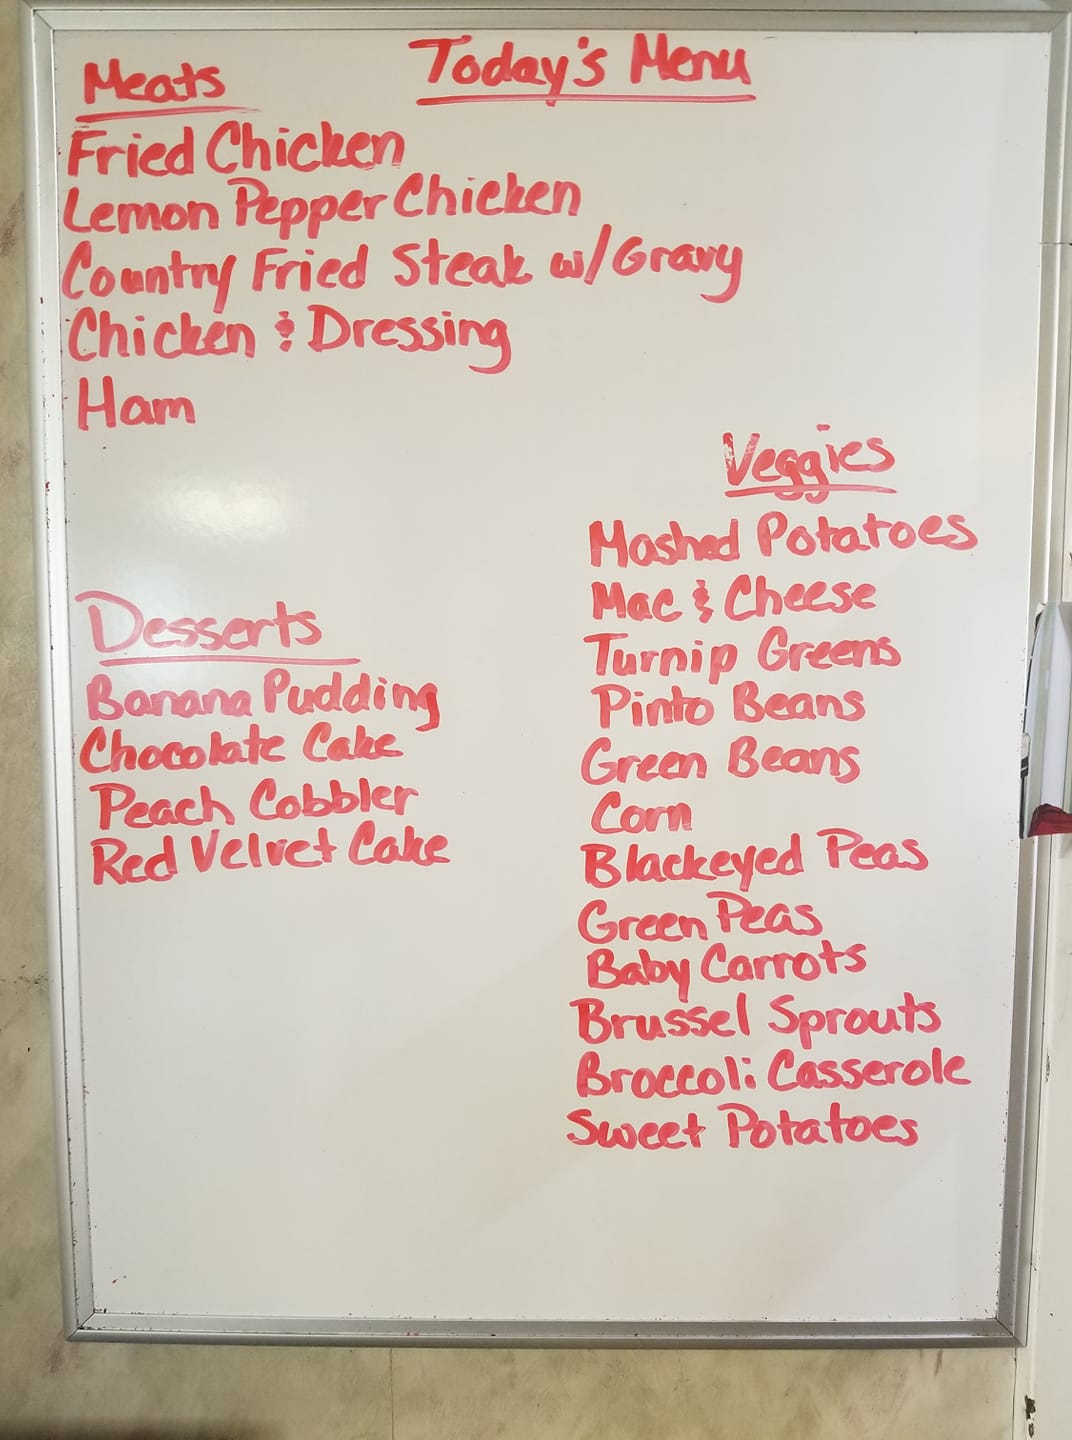 Today's Menu
Meats
Fried Chicken
Lemon Pepper Chicken
Country Fried Steak w/Gravy
Chicken & Dressing
Ham
Veggies
Mashed Potatoes
Mac & Cheese
Turnip Greens
Pinto Beans
Green Beans
Corn
Blackeyed Peas
Green Peas
Baby Carrots
Brussel Sprouts
Broccoli Casserole
Sweet Potatoes
Desserts
Banana Pudding
Chocolate Cake
Peach Cobbler
Red Velvet Cake